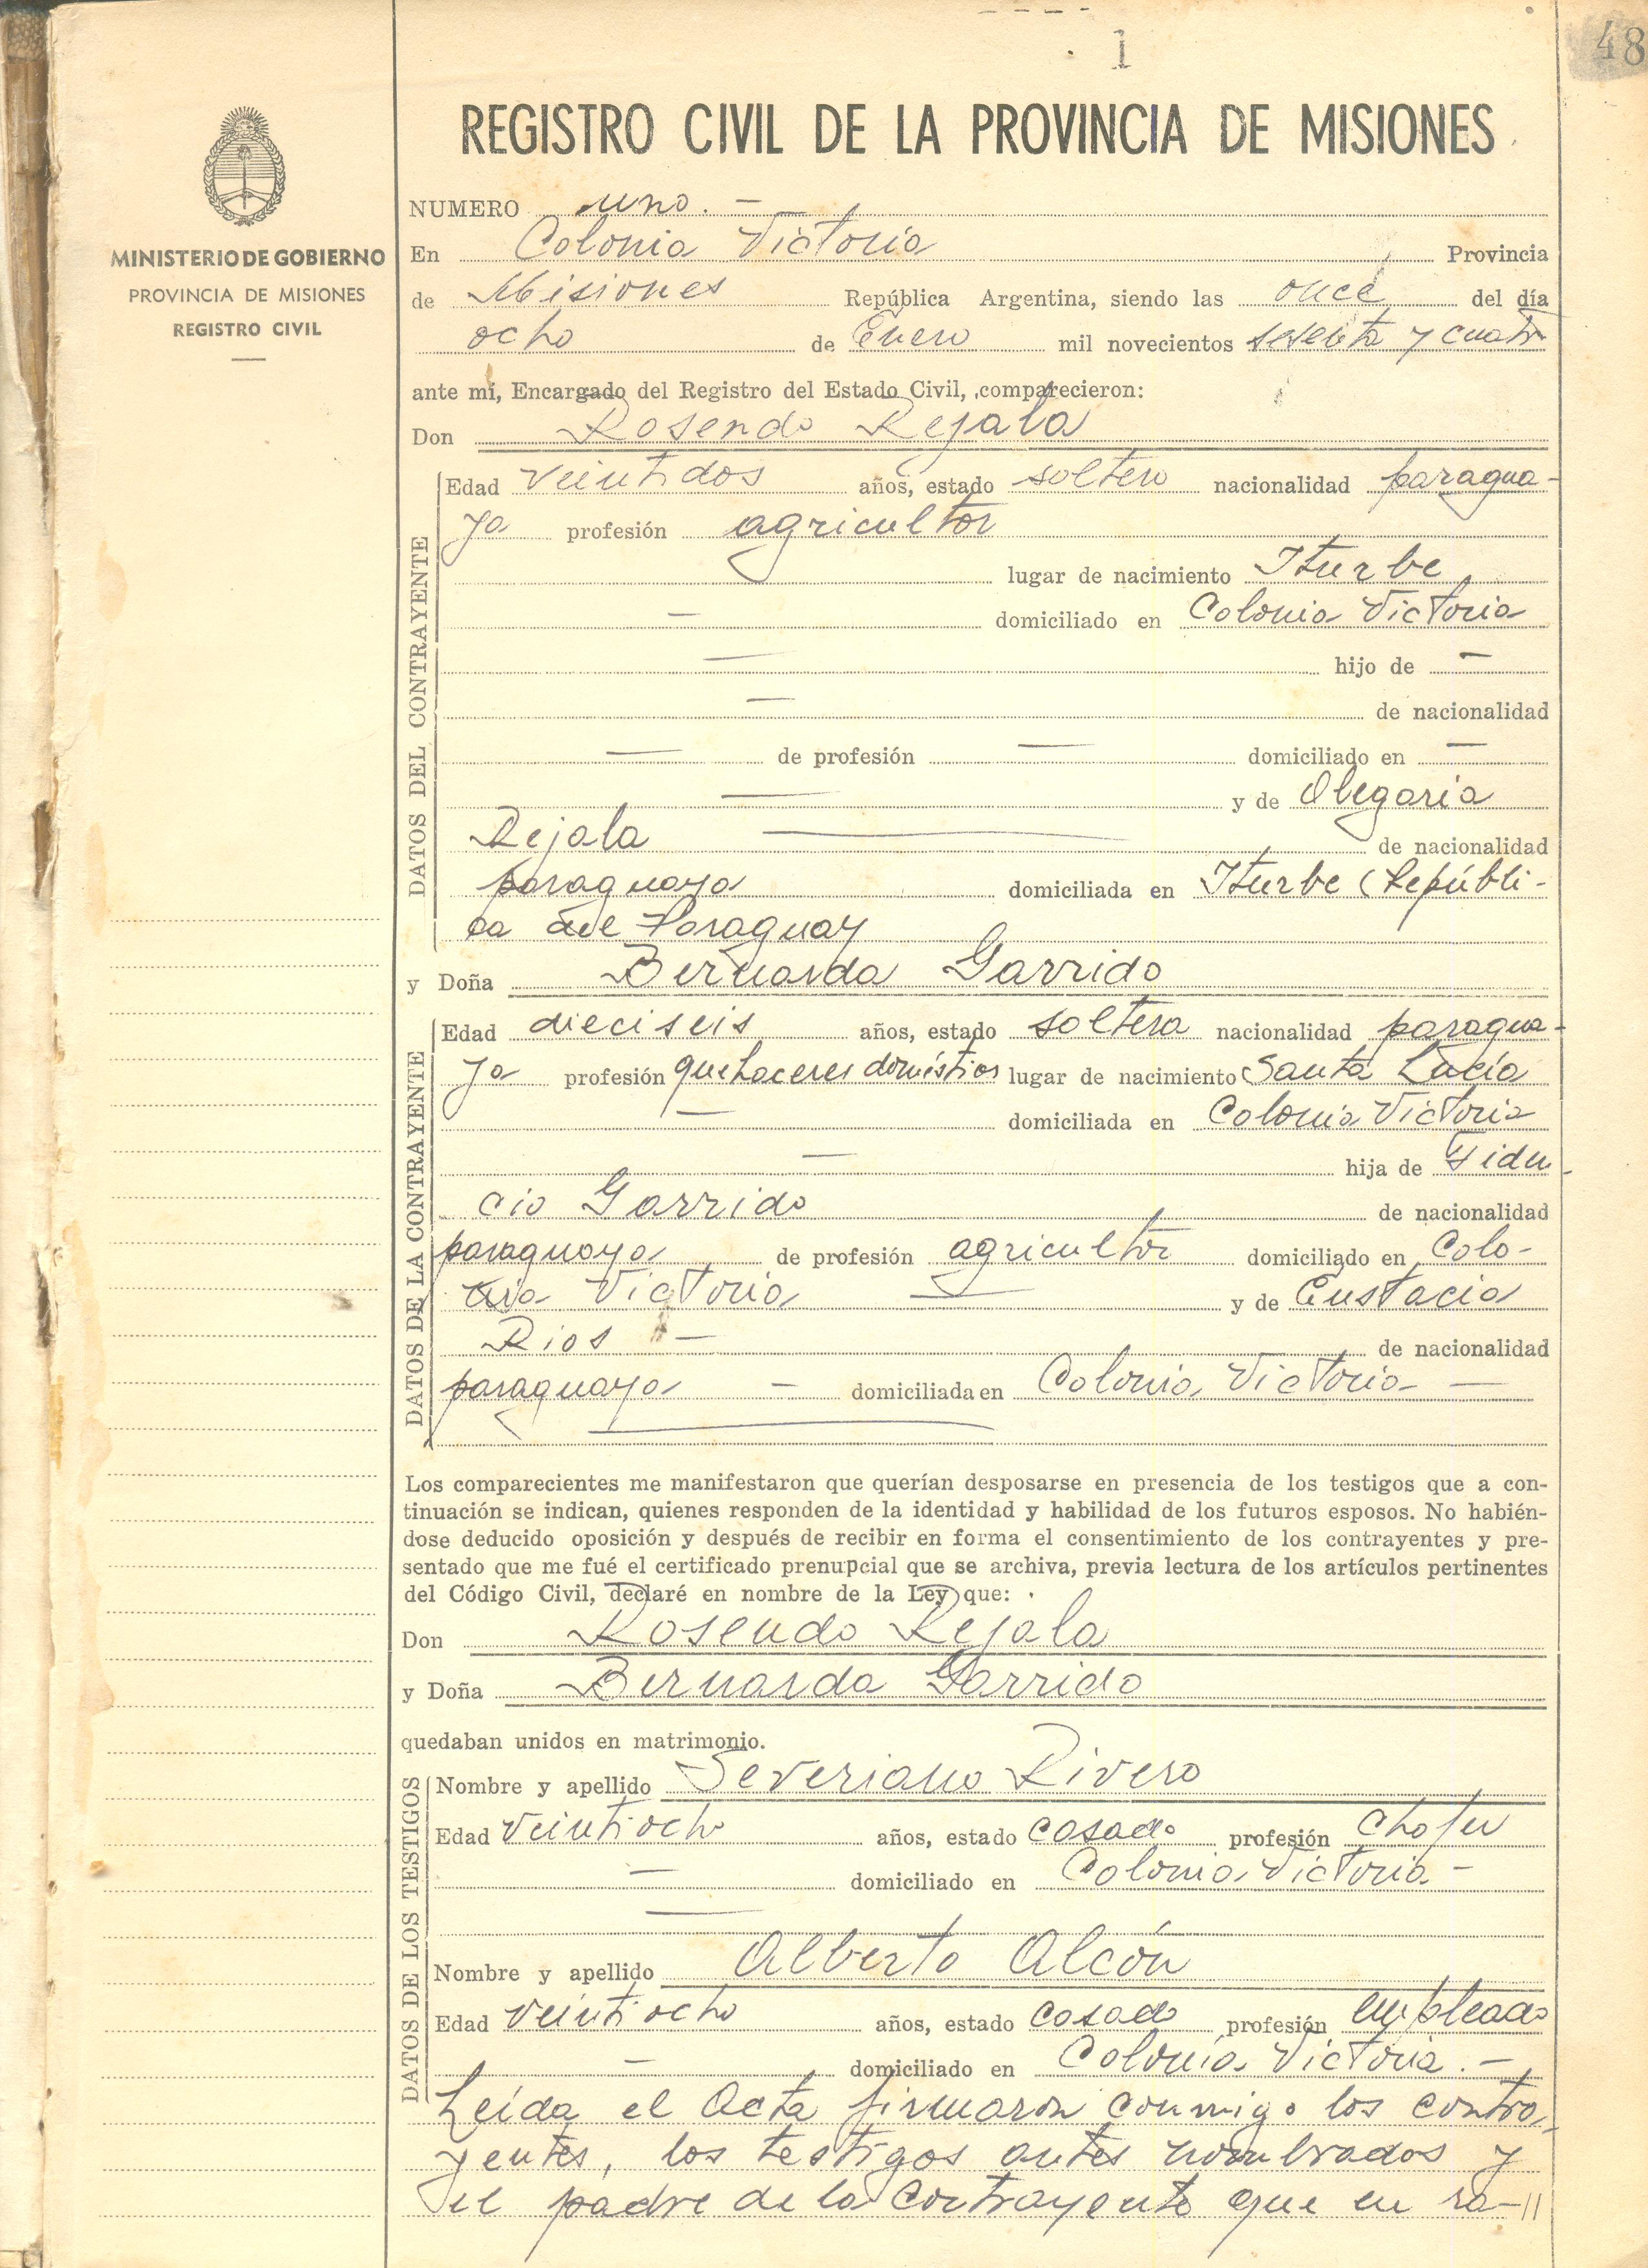 1
48
REGISTRO CIVIL DE LA PROVINCIA DE MISIONES
MINISTERIO DE GOBIERNO
PROVINCIA DE MISIONES
REGISTRO CIVIL
NUMERO uno. -
En Colonia Victoria Provincia
de Misiones República Argentina, siendo las once del día
ocho de Enero mil novecientos sesenta y cuatro
ante mí, Encargado del Registro del Estado Civil, comparecieron:
Don Rosendo Rejala
DATOS DEL CONTRAYENTE
Edad veintidos años, estado soltero nacionalidad paragua-
ya profesión agricultor
lugar de nacimiento Iturbe
- domiciliado en Colonia Victoria
- hijo de -
- de nacionalidad
- de profesión - domiciliado en -
- y de Olegaria
Rejala - de nacionalidad
paraguaya domiciliada en Iturbe (Repúbli-
ca de Paraguay
y Doña Bernarda Garrido
DATOS DE LA CONTRAYENTE
Edad dieciseis años, estado soltera nacionalidad paragua-
ya profesión quehaceres domésticos lugar de nacimiento Santa Lucía
- domiciliada en Colonia Victoria
- hija de Fidu-
cio Garrido de nacionalidad
paraguaya de profesión agricultor domiciliado en Colo-
nia Victoria - y de Eustacia
Rios - de nacionalidad
paraguaya - domiciliada en Colonia Victoria -
Los comparecientes me manifestaron que querían desposarse en presencia de los testigos que a con-
tinuación se indican, quienes responden de la identidad y habilidad de los futuros esposos. No habién-
dose deducido oposición y después de recibir en forma el consentimiento de los contrayentes y pre-
sentado que me fué el certificado prenupcial que se archiva, previa lectura de los artículos pertinentes
del Código Civil, declaré en nombre de la Ley que:
Don Rosendo Rejala
y Doña Bernarda Garrido
quedaban unidos en matrimonio.
DATOS DE LOS TESTIGOS
Nombre y apellido Severiano Rivero
Edad veintiocho años, estado casado profesión chofer
- domiciliado en Colonia Victoria -
Nombre y apellido Alberto Alcón
Edad veintiocho años, estado casado profesión empleado
- domiciliado en Colonia Victoria. -
Leída el Acta firmaron conmigo los contra-
yentes, los testigos antes nombrados y
el padre de la contrayente que en ra-//